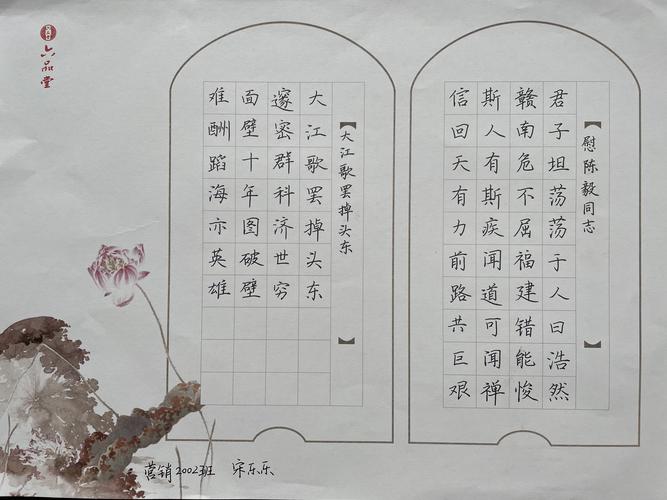 慰陈毅同志
君子坦荡荡于人曰浩然
赣南危不屈福建错能悛
斯人有斯疾闻道可闻禅
信回天有力前路共巨艰
大江歌罢掉头东
大江歌罢掉头东
邃密群科济世穷
面壁十年图破壁
难酬蹈海亦英雄
六品堂
营销2002班 宋乐乐